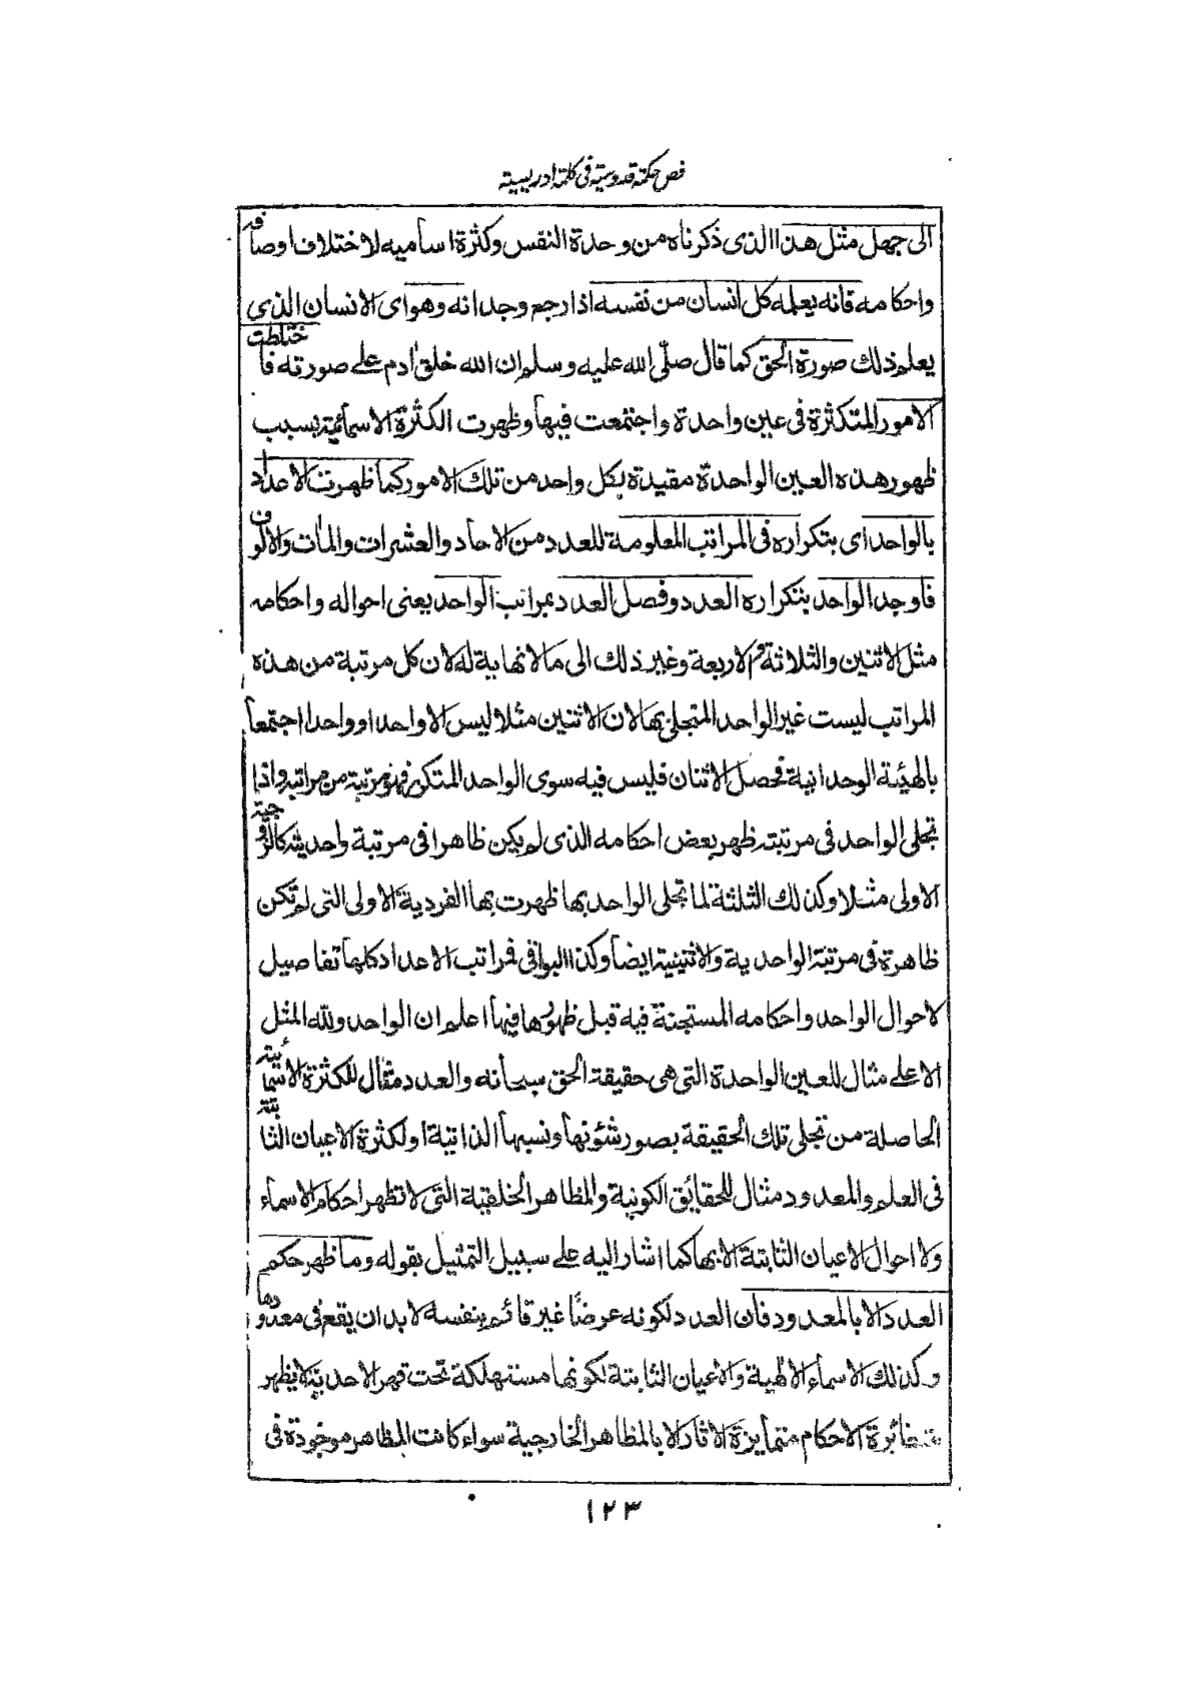 فص حكمة قدوسية فى كلمة ادريسية
الى جهل مثل هذا الذى ذكرناه من وحدة النفس وكثرة اساميه لاختلاف اوصافه
واحكامه فانه يعلمه كل انسان من نفسه اذا رجع وجدانه وهو اى الانسان الذى
يعلم ذلك صورة الحق كما قال صلّى الله عليه وسلم ان الله خلق اٰدم على صورته فاختلطت
الامور المتكثرة فى عين واحدة واجتمعت فيها وظهرت الكثرة الاسمائية بسبب
ظهور هذه العين الواحدة مقيدة بكل واحد من تلك الامور كما ظهرت الاعداد
بالواحد اى بتكراره فى المراتب المعلومة للعدد من الاحاد والعشرات والمات والالوف
فاوجد الواحد بتكراره العدد وفصل العدد بمراتب الواحد يعنى احواله واحكامه
مثل الاثنين والثلاثة والاربعة وغير ذلك الى ما لا نهاية له لان كل مرتبة من هذه
المراتب ليست غير الواحد المتجلى بها لان الاثنين مثلا ليس الا واحدا وواحدا اجتمعا
بالهيئة الوحدانية فحصل الاثنان فليس فيه سوى الواحد المتكرر فهو مرتبة من مراتبه واذا
تجلى الواحد فى مرتبته ظهر بعض احكامه الذى لم يكن ظاهرا فى مرتبة واحديته كالزوجية
الاولى مثلا وكذلك الثلثة لما تجلى الواحد بها ظهرت بها الفردية الاولى التى لم تكن
ظاهرة فى مرتبة الواحدية والاثنينية ايضا وكذا البواقى فمراتب الاعداد كلها تفاصيل
لاحوال الواحد واحكامه المستجنة فيه قبل ظهورها فيها اعلم ان الواحد ولله المثل
الاعلى مثال للعين الواحدة التى هى حقيقة الحق سبحانه والعدد مثال للكثرة الاسمائية
الحاصلة من تجلى تلك الحقيقة بصور شئونها ونسبها الذاتية او لكثرة الاعيان الثابتة
فى العلم والمعدود مثال للحقايق الكونية والمظاهر الخلقية التى لا تظهر احكام الاسماء
ولا احوال الاعيان الثابتة الا بها كما اشار اليه على سبيل التمثيل بقوله وما ظهر حكم
العدد الا بالمعدود فان العدد لكونه عرضًا غير قائم بنفسه لا بد ان يقع فى معدودها
وكذلك الاسماء الالهية والاعيان الثابتة لكونها مستهلكة تحت قهر الاحدية لا يظهر
متغائرة الاحكام متمايزة الاثار الا بالمظاهر الخارجية سواء كانت المظاهر موجودة فى
١٢٣